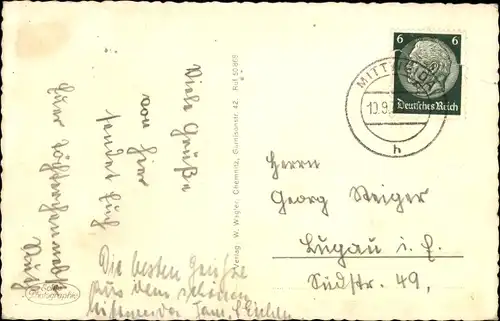 Viele Grüße
von hier
sendet Euch
Euer
Die besten Grüße
aus dem schönen
Fam.
Verlag W. Wagler, Chemnitz, 42. Ruf 50869
Photographie
6 6
Deutsches Reich
MITTWEIDA
10.9.
h
Herrn
Georg Steiger
Lugau i. E.
Südstr. 49,